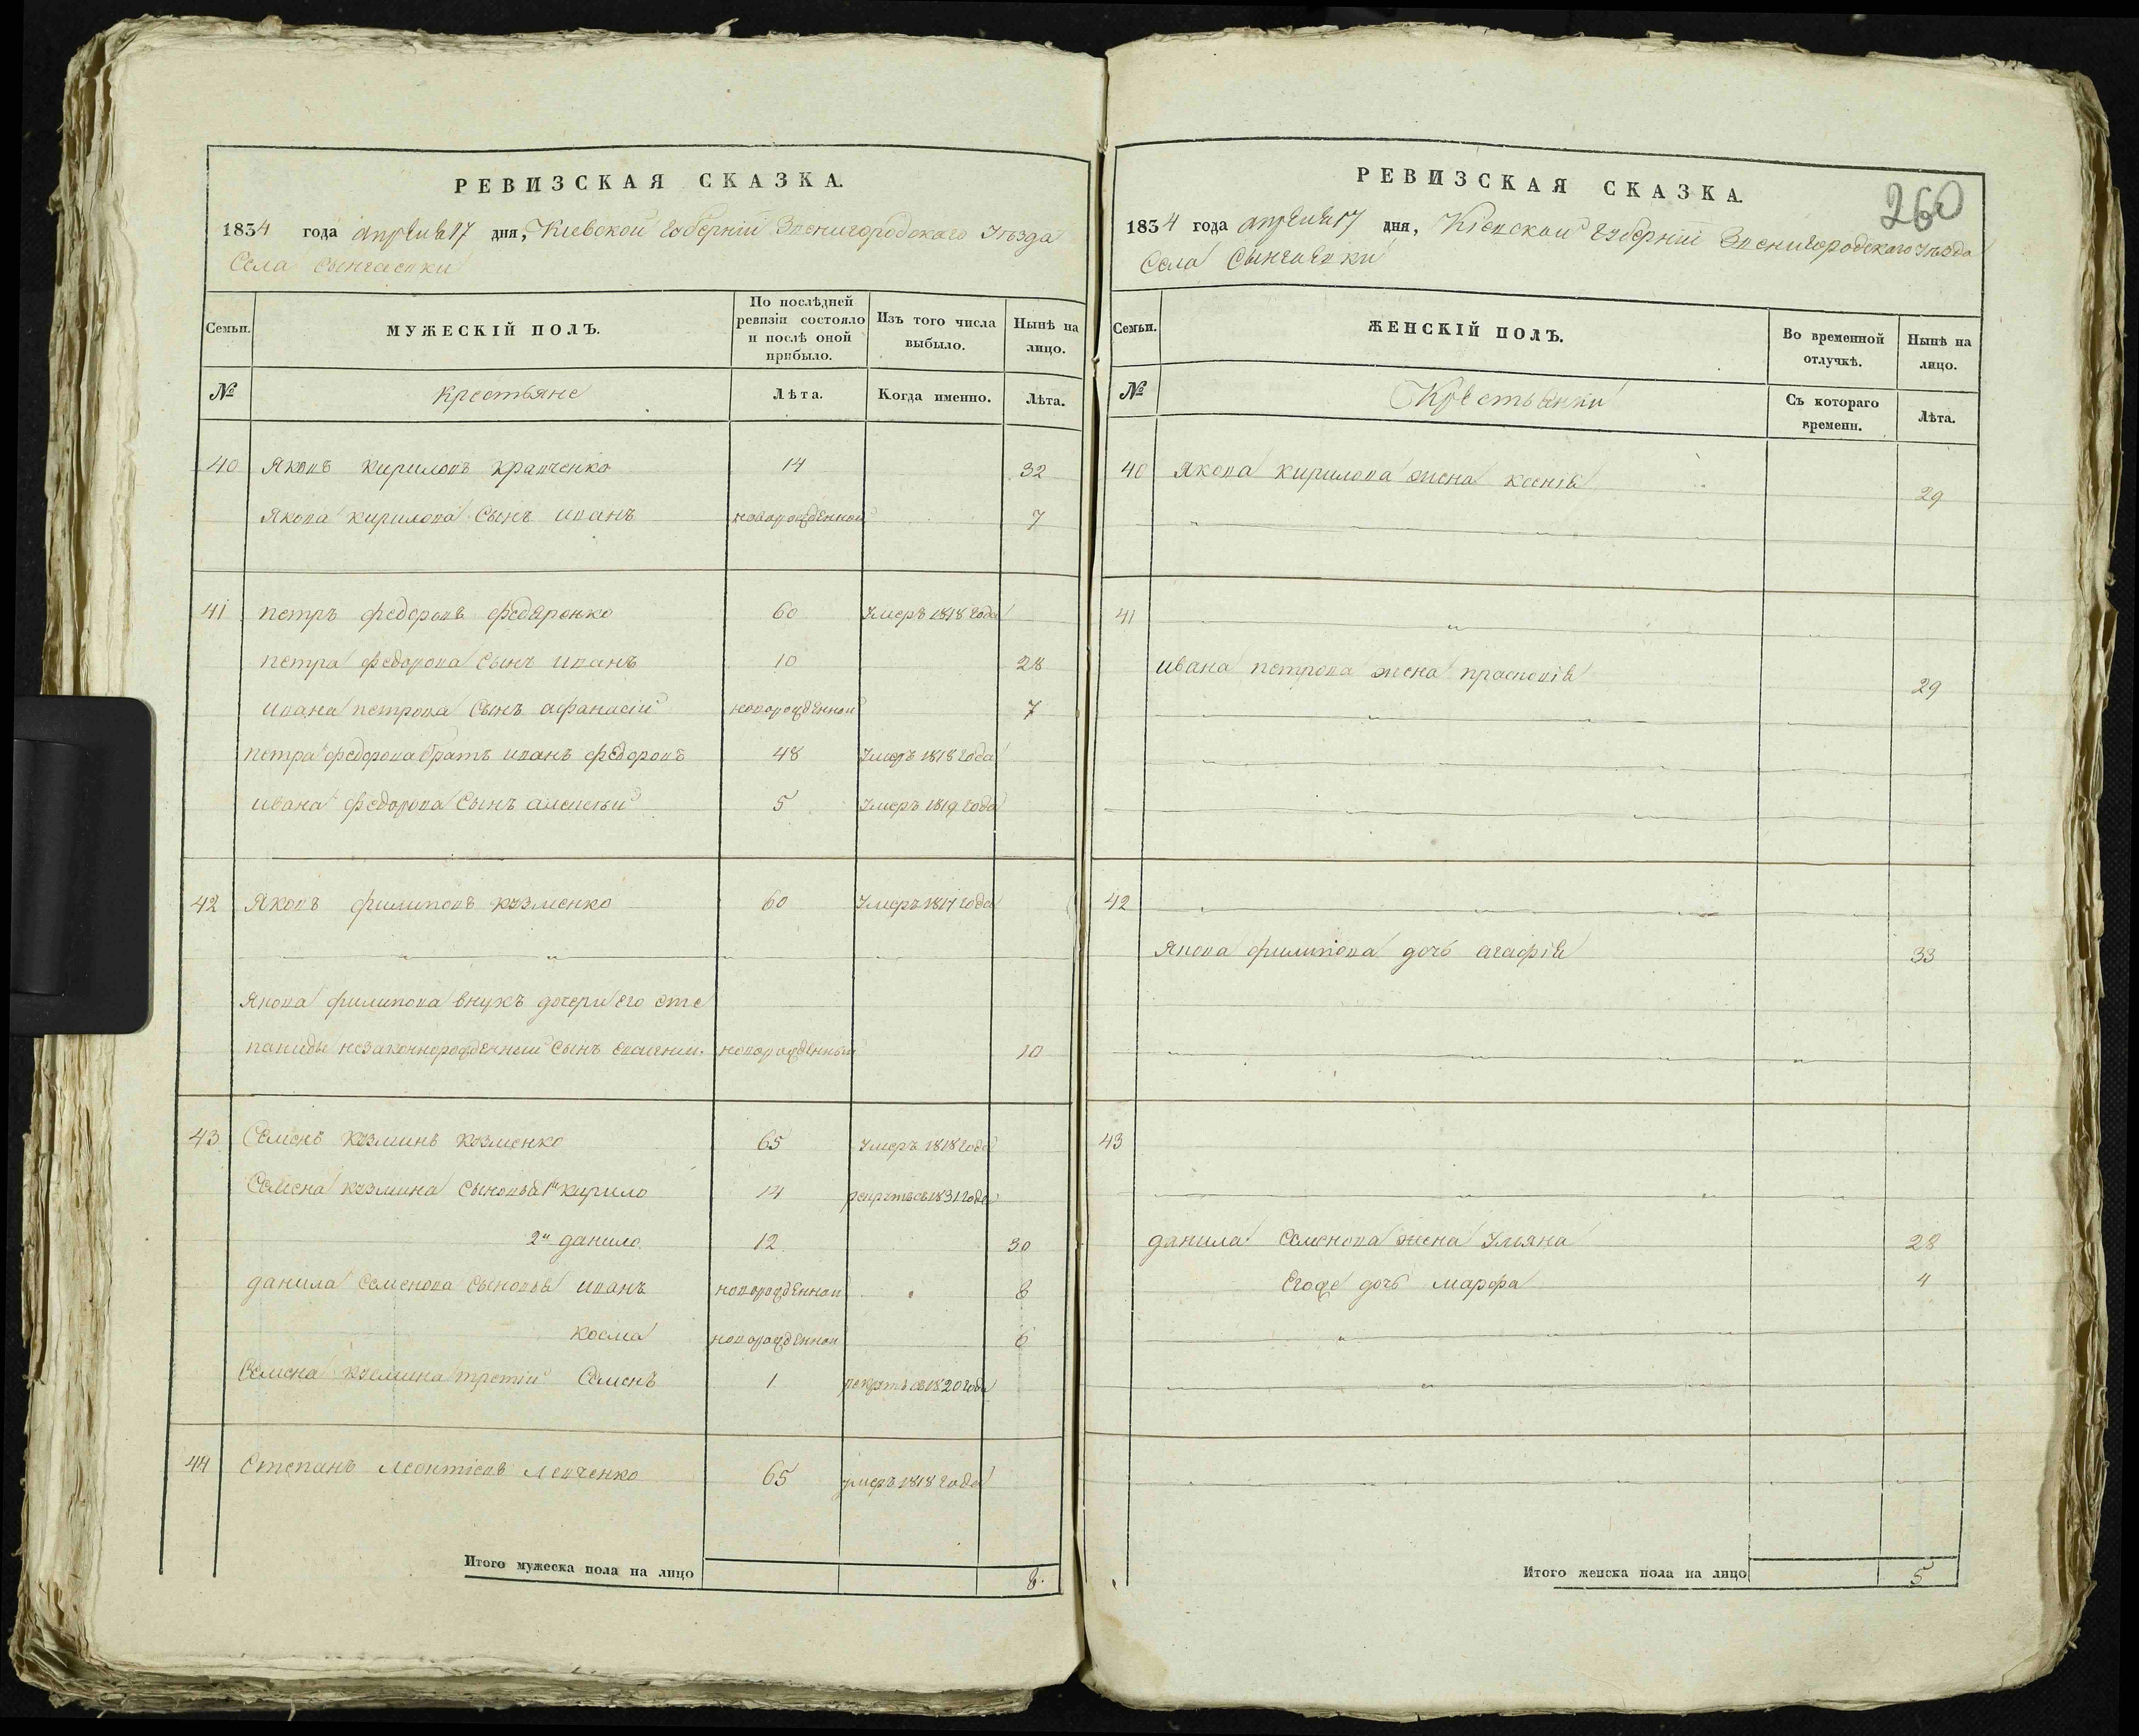 РЕВИЗСКАЯ СКАЗКА.
1834 года апреля 17 дня, Киевской Губернии Звенигородского Уезда
Села
Семьи. МУЖЕСКІЙ ПОЛЪ. По послѣдней ревизіи состояло и послѣ оной прибыло. Изъ того числа выбыло. Нынѣ на лицо.
№ Крестьяне Лѣта. Когда именно. Лѣта.
40 Яковъ Кириловъ Кравченко 14 32
Якова Кирилова Сынъ Иванъ новорожденной 7
41 Петръ Федоровъ Федоренко 60 Умеръ 1818 года
Петра Федорова Сынъ Иванъ 10 28
Ивана Петрова Сынъ Афанасій новорожденной 7
Петра Федорова братъ Иванъ Федоровъ 48 Умеръ 1818 года
Ивана Федорова Сынъ Алексѣй 5 Умеръ 1819 года
42 Яковъ Филиповъ Козменко 60 Умеръ 1817 года
Якова Филипова внукъ дочери его Сте
паниды незаконнорожденный Сынъ новорожденный 10
43 Семенъ Козминъ Козменко 65 Умеръ 1818 года
Семена Козмина Сыновья 1й Кирило 14 1831 года
2й Данило 12 30
Данила Семенова Сыновья Иванъ новорожденной 8
Косма новорожденной 6
Семена Козмина третій Семенъ 1 1820 года
44 Степанъ Леонтіевъ Левченко 65 умеръ 1818 года
Итого мужеска пола на лицо 8.
РЕВИЗСКАЯ СКАЗКА.
260
1834 года апреля 17 дня, Кіевской Губерніи Звенигородского Уезда
Села
Семьи. ЖЕНСКІЙ ПОЛЪ. Во временной отлучкѣ. Нынѣ на лицо.
№ Крестьянки Съ котораго времени. Лѣта.
40 Якова Кирилова жена Ксенія 29
41
Ивана Петрова жена Прасковія 29
42
Якова Филипова дочь Агафія 33
43
Данила Семенова жена Ульяна 28
Егоже дочь Марфа 4
Итого женска пола на лицо 5